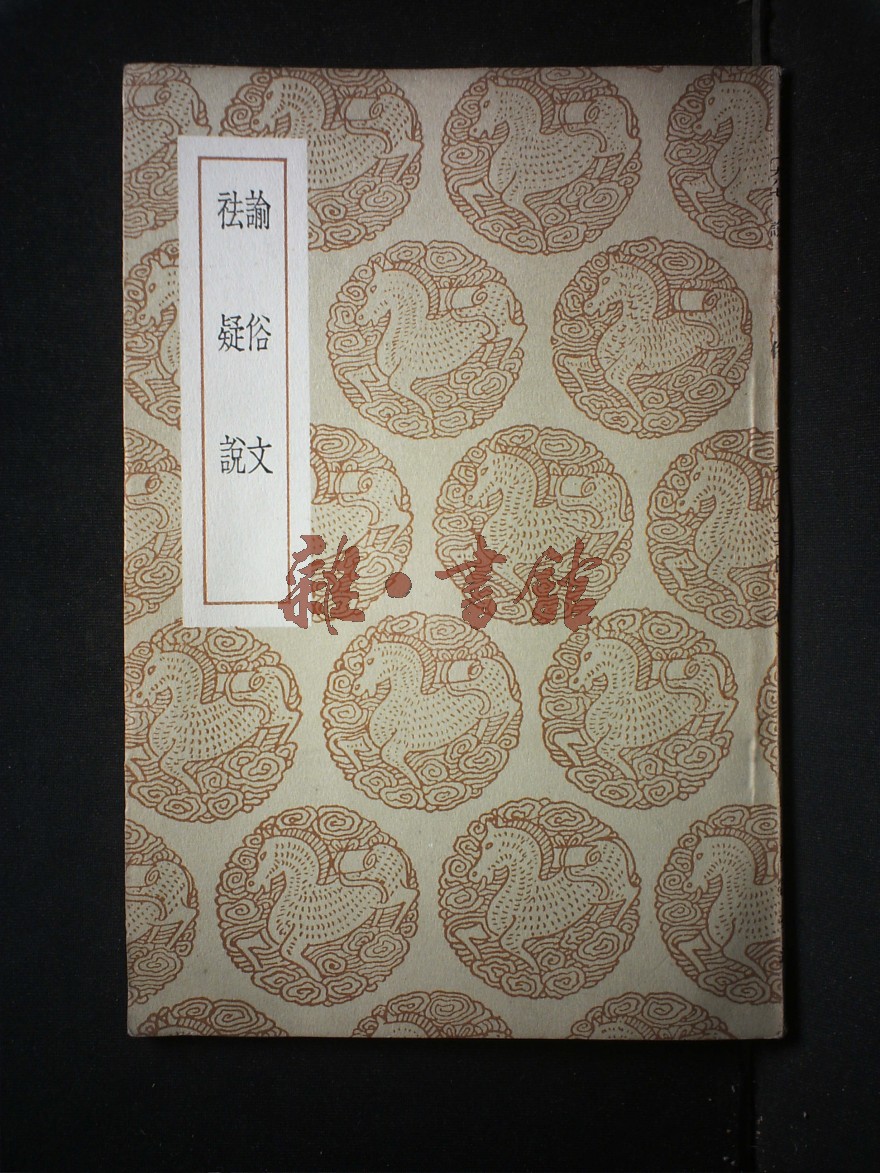 諭俗文
祛疑說
雜·書館